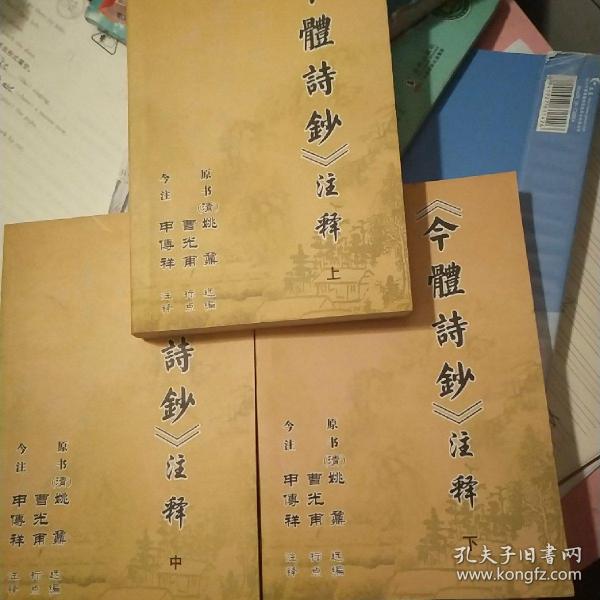 體詩鈔》注释
上
原书(清)姚鼐 选编
曹光甫 标点
今注 申傳祥 注释
詩鈔》注释
中
原书(清)姚鼐 选编
曹光甫 标点
今注 申傳祥 注释
《今體詩鈔》注释
下
原书(清)姚鼐 选编
曹光甫 标点
今注 申傳祥 注释
孔夫子旧书网
www.kongfz.com